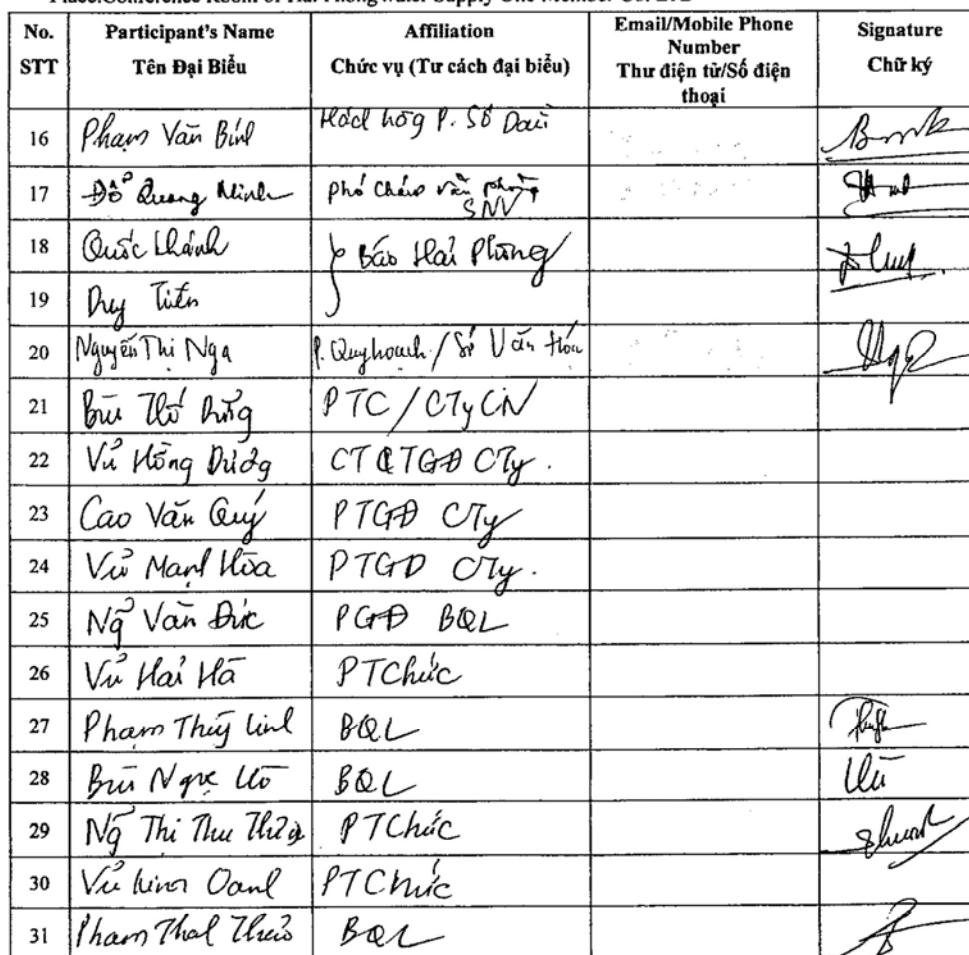 Place:Conference Room of Hai Phong Water Supply One Member Co. LTD
No. STT
Participant's Name Tên Đại Biểu
Affiliation Chức vụ (Tư cách đại biểu)
Email/Mobile Phone Number Thư điện tử/Số điện thoại
Signature Chữ ký
16 Phạm Văn Bính
17 Đỗ Quang Minh Phó Chánh văn phòng SNV
18 Quốc Khánh Báo Hải Phòng
19 Duy Tiến
20 Nguyễn Thị Nga P. Quy hoạch / Sở Văn hóa
21 Bùi PTC / CTy CN
22 Vũ Hồng Dương CT TGĐ CTy.
23 Cao Văn Quý PTGĐ CTy
24 Vũ Mạnh Hòa PTGĐ CTy.
25 Ng Văn Đức PGĐ BQL
26 Vũ Hải Hà PTChức
27 Phạm Thùy Linh BQL
28 Bùi Ngọc BQL
29 Ng Thị Thu PTChức
30 Vũ Oanh PTChức
31 Phạm BQL